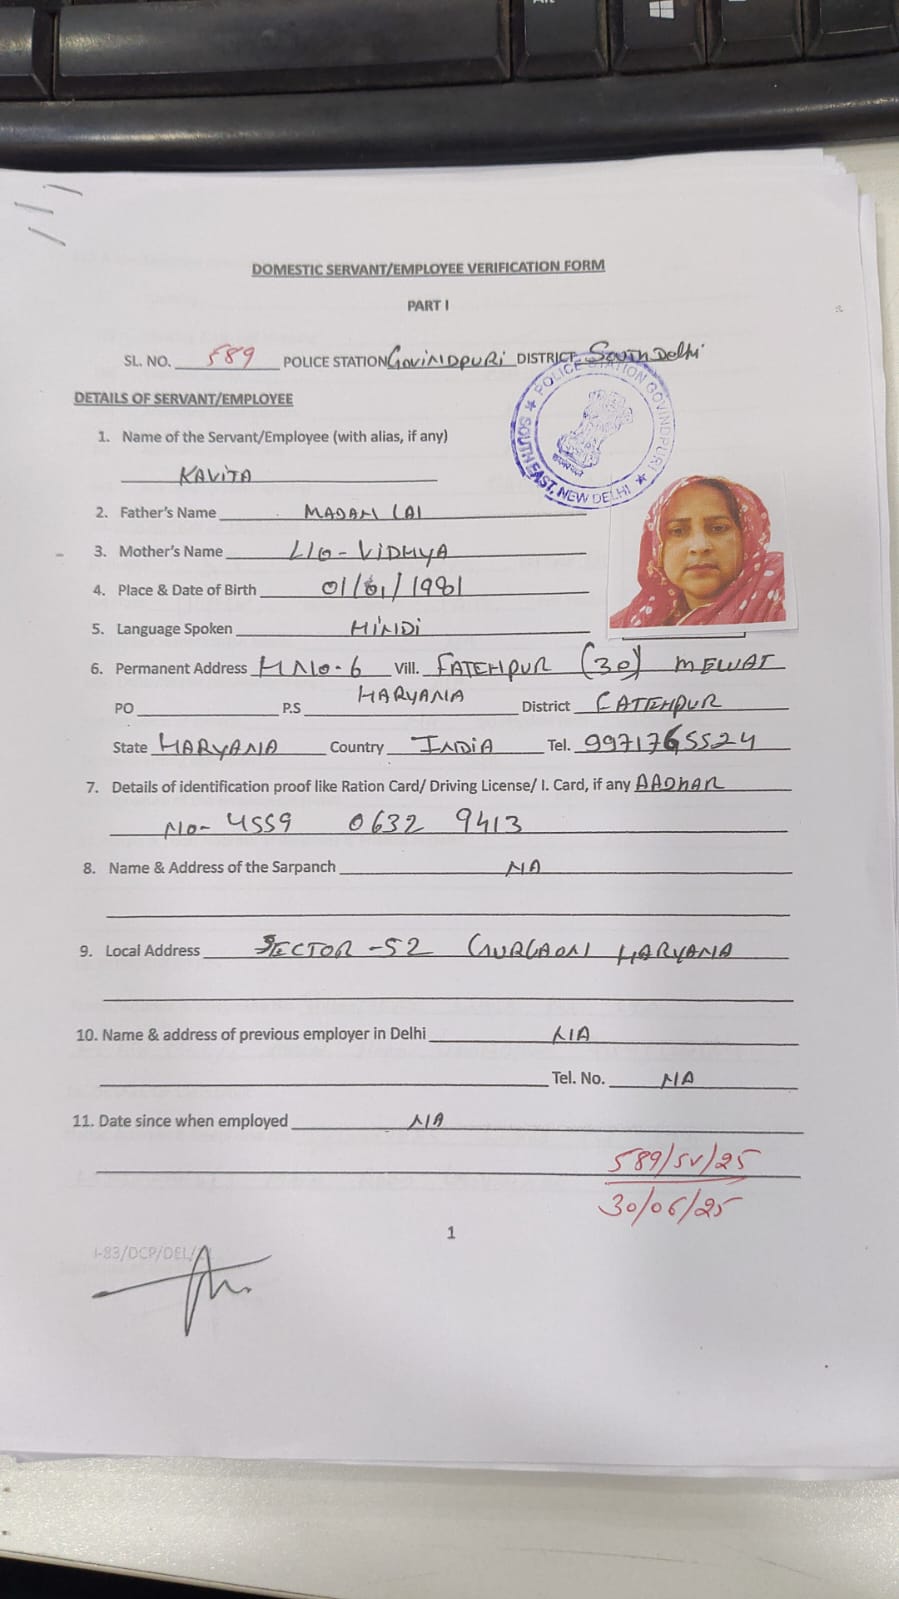 DOMESTIC SERVANT/EMPLOYEE VERIFICATION FORM
PART I
SL. NO. 589 POLICE STATION GOVINDPURI DISTRICT South Delhi
★ POLICE STATION GOVINDPURI ★ SOUTH EAST, NEW DELHI
DETAILS OF SERVANT/EMPLOYEE
1. Name of the Servant/Employee (with alias, if any)
KAVITA
2. Father's Name MADAN LAL
3. Mother's Name L/O-VIDHYA
4. Place & Date of Birth 01/01/1981
5. Language Spoken HINDI
6. Permanent Address H NO-6 Vill. FATEHPUR (30) MEWAT
PO P.S HARYANA District FATEHPUR
State HARYANA Country INDIA Tel. 9971765524
7. Details of identification proof like Ration Card/ Driving License/ I. Card, if any AADHAR
NO- 4559 0632 9413
8. Name & Address of the Sarpanch NA
9. Local Address SECTOR-52 GURGAON HARYANA
10. Name & address of previous employer in Delhi N/A
Tel. No. N/A
11. Date since when employed N/A
589/SV/25
30/06/25
1
I-83/DCP/DEL/